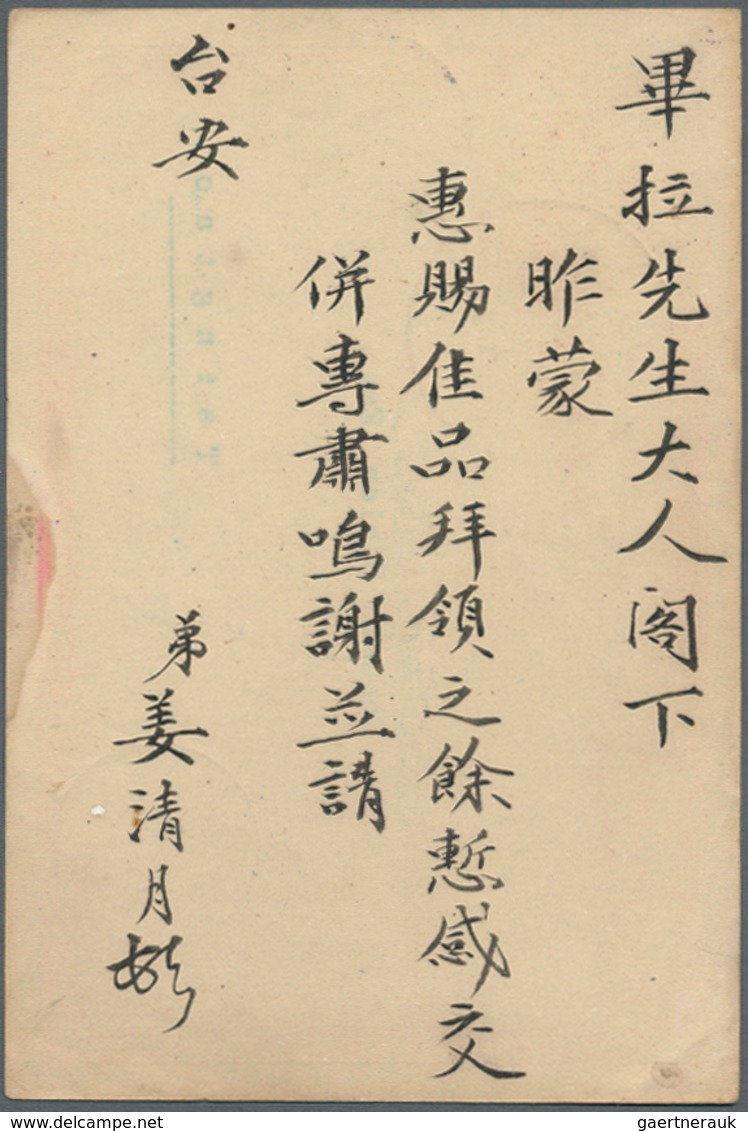 畢拉先生大人閣下
昨蒙
惠賜佳品拜領之餘慙感交
併專肅鳴謝並請
台安
弟姜清月
Tsingtau
gaertnerauk